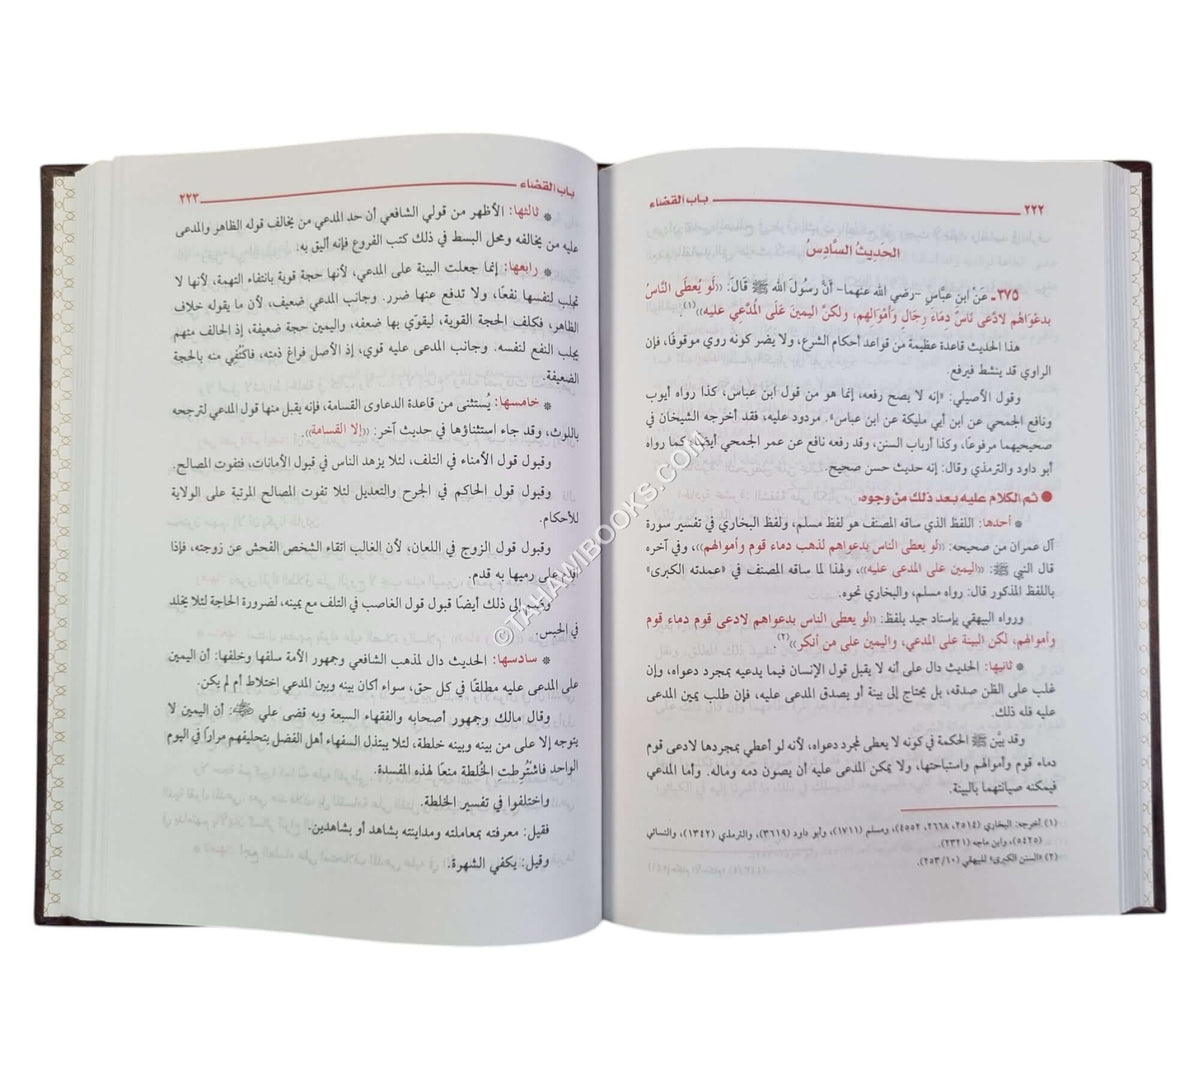 ٢٢٢ باب القضاء
الحَدِيثُ السَّادِسُ
٣٧٥ـ عَنْ ابن عبَّاسٍ -رَضي الله عنهما- أنَّ رسُولَ الله ﷺ قَالَ: «لَو يُعطَى النَّاسُ
بدعوَاهُم لادَّعى نَاسٌ دِمَاءَ رجَالٍ وَأَموَالهِم، ولكنَّ اليمينَ عَلَى المُدَّعي عليه»(١).
هذا الحديث قاعدة عظيمة من قواعد أحكام الشرع، ولا يضر كونه روي موقوفًا، فإن
الراوي قد ينشط فيرفع.
وقول الأصيلي: «إنه لا يصح رفعه، إنما هو من قول ابن عباس، كذا رواه أيوب
ونافع الجمحي عن ابن أبي مليكة عن ابن عباس». مردود عليه، فقد أخرجه الشيخان في
صحيحيهما مرفوعًا، وكذا أرباب السنن، وقد رفعه نافع عن عمر الجمحي أيضًا، كما رواه
أبو داود والترمذي وقال: إنه حديث حسن صحيح.
● ثم الكلام عليه بعد ذلك من وجوه:
* أحدها: اللفظ الذي ساقه المصنف هو لفظ مسلم، ولفظ البخاري في تفسير سورة
آل عمران من صحيحه: «لو يعطى الناس بدعواهم لذهب دماء قوم وأموالهم»، وفي آخره
قال النبي ﷺ: «اليمين على المدعى عليه»، ولهذا لما ساقه المصنف في «عمدته الكبرى»
باللفظ المذكور قال: رواه مسلم، والبخاري نحوه.
ورواه البيهقي بإسناد جيد بلفظ: «لو يعطى الناس بدعواهم لادعى قوم دماء قوم
وأموالهم، لكن البينة على المدعي، واليمين على من أنكر»(٢).
* ثانيها: الحديث دال على أنه لا يقبل قول الإنسان فيما يدعيه بمجرد دعواه، وإن
غلب على الظن صدقه، بل يحتاج إلى بينة أو يصدق المدعى عليه، فإن طلب يمين المدعى
عليه فله ذلك.
وقد بيَّن ﷺ الحكمة في كونه لا يعطى لمجرد دعواه، لأنه لو أعطي بمجردها لادعى قوم
دماء قوم وأموالهم واستباحتها، ولا يمكن المدعى عليه أن يصون دمه وماله. وأما المدعي
فيمكنه صيانتهما بالبينة.
(١) أخرجه: البخاري (٢٥١٤، ٢٦٦٨، ٤٥٥٢)، ومسلم (١٧١١)، وأبو داود (٣٦١٩)، والترمذي (١٣٤٢)، والنسائي
(٥٤٢٥)، وابن ماجه (٢٣٢١).
(٢) «السنن الكبرى» للبيهقي (١٠/ ٢٥٣).
باب القضاء ٢٢٣
* ثالثها: الأظهر من قولي الشافعي أن حد المدعي من يخالف قوله الظاهر والمدعى
عليه من يخالفه ومحل البسط في ذلك كتب الفروع فإنه أليق به.
* رابعها: إنما جعلت البينة على المدعي، لأنها حجة قوية بانتفاء التهمة، لأنها لا
تجلب لنفسها نفعًا، ولا تدفع عنها ضرر. وجانب المدعي ضعيف، لأن ما يقوله خلاف
الظاهر، فكلف الحجة القوية، ليقوّي بها ضعفه، واليمين حجة ضعيفة، إذ الحالف متهم
يجلب النفع لنفسه. وجانب المدعى عليه قوي، إذ الأصل فراغ ذمته، فاكتُفِي منه بالحجة
الضعيفة.
* خامسها: يُستثنى من قاعدة الدعاوى القسامة، فإنه يقبل منها قول المدعي لترجحه
باللوث، وقد جاء استثناؤها في حديث آخر: «إلا القسامة».
وقبول قول الأمناء في التلف، لئلا يزهد الناس في قبول الأمانات، فتفوت المصالح.
وقبول قول الحاكم في الجرح والتعديل لئلا تفوت المصالح المرتبة على الولاية
للأحكام.
وقبول قول الزوج في اللعان، لأن الغالب اتقاء الشخص الفحش عن زوجته، فإذا
على رميها به قدم.
إلى ذلك أيضًا قبول قول الغاصب في التلف مع يمينه، لضرورة الحاجة لئلا يخلد
في الحبس.
* سادسها: الحديث دال لمذهب الشافعي وجمهور الأمة سلفها وخلفها: أن اليمين
على المدعى عليه مطلقًا في كل حق، سواء أكان بينه وبين المدعي اختلاط أم لم يكن.
وقال مالك وجمهور أصحابه والفقهاء السبعة وبه قضى علي ﵁: أن اليمين لا
يتوجه إلا على من بينه وبينه خلطة، لئلا يبتذل السفهاء أهل الفضل بتحليفهم مرارًا في اليوم
الواحد فاشتُرطت الخُلطة منعًا لهذه المفسدة.
واختلفوا في تفسير الخلطة.
فقيل: معرفته بمعاملته ومداينته بشاهد أو بشاهدين.
وقيل: يكفي الشهرة.
©TAHAWIBOOKS.COM